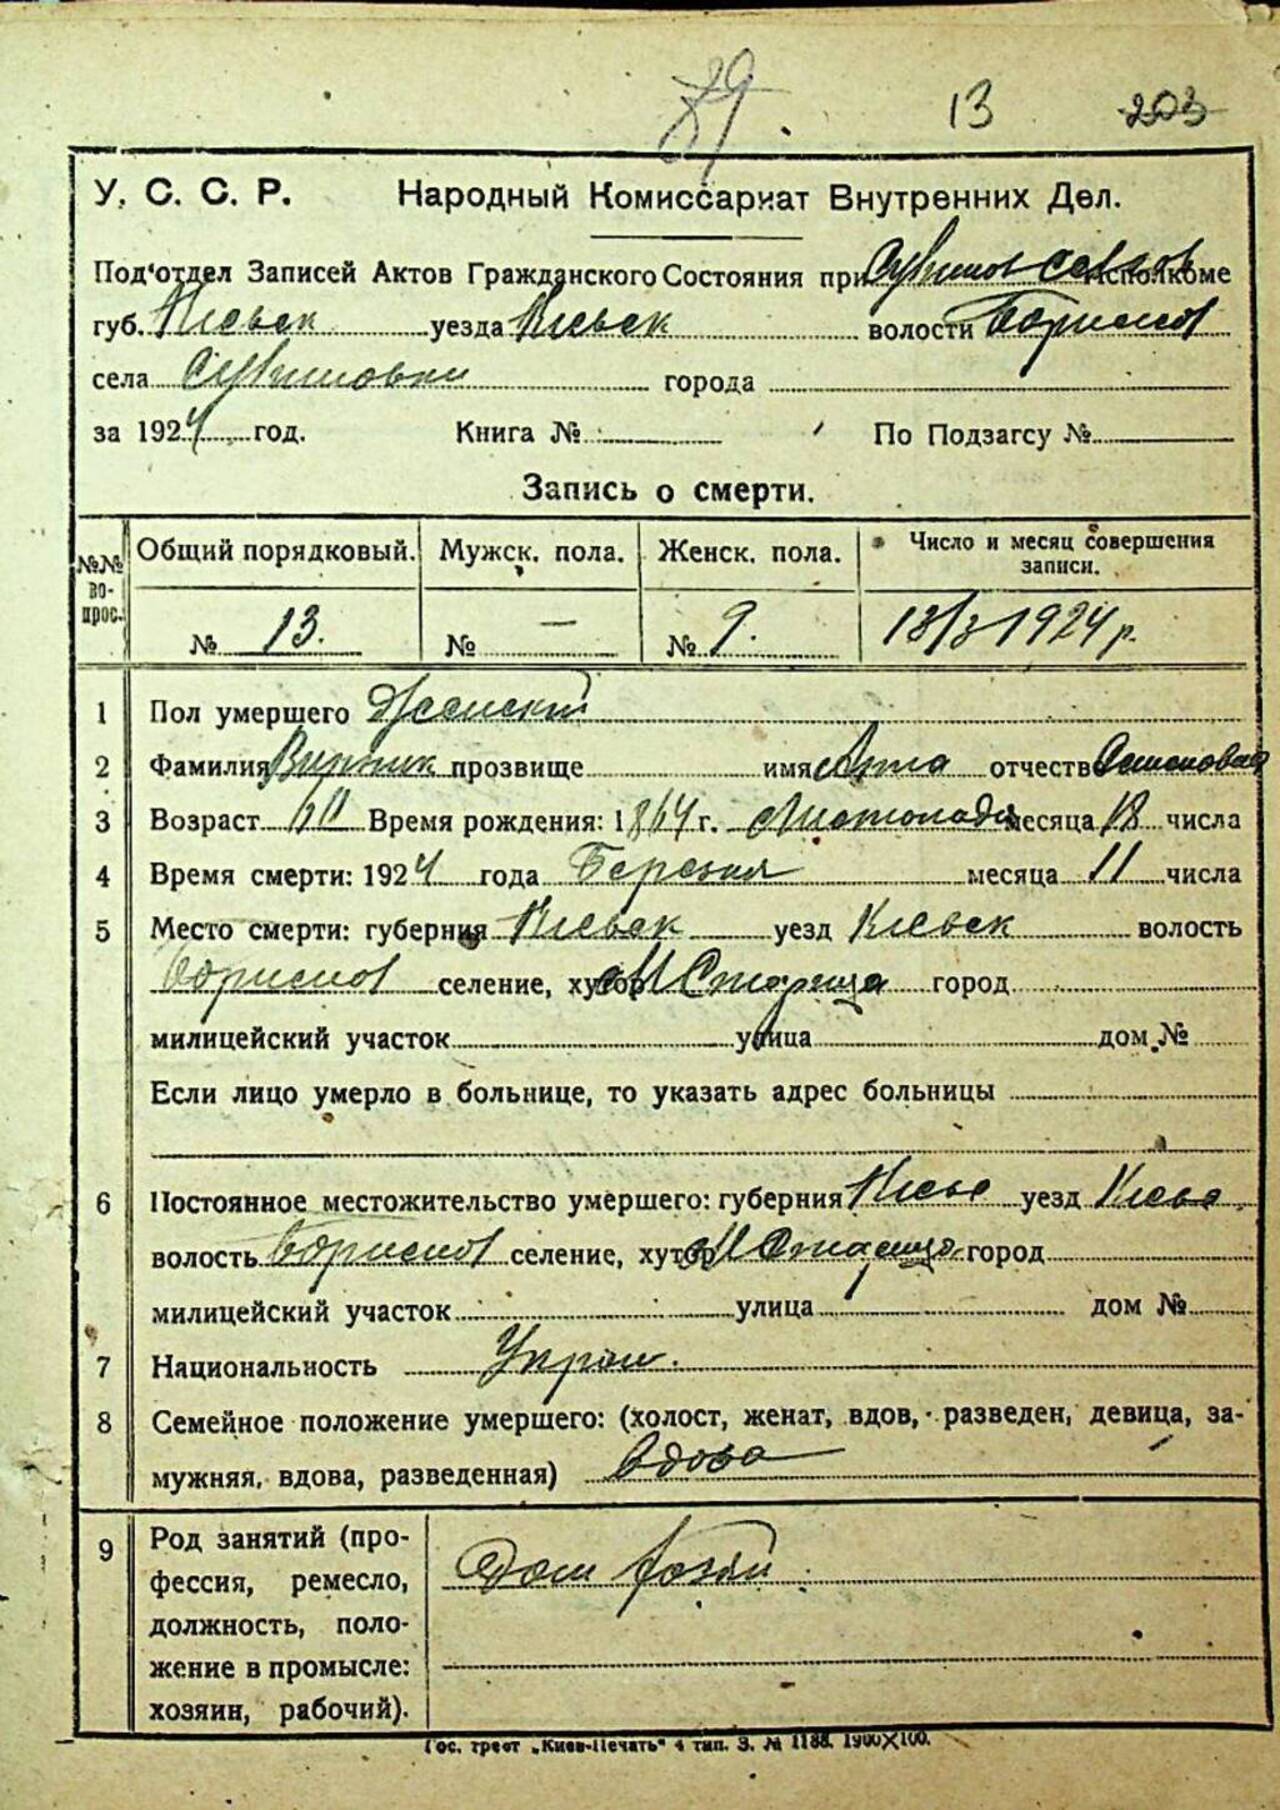 89. 13 203
У. С. С. Р. Народный Комиссариат Внутренних Дел.
Под'отдел Записей Актов Гражданского Состояния при Исполкоме
губ. Киевск уезда Киевск волости Бориспол
села города
за 1924 год. Книга № По Подзагсу №
Запись о смерти.
№№ вопрос. Общий порядковый. Мужск. пола. Женск. пола. Число и месяц совершения записи.
№ 13. № — № 9. 13/3 1924 р.
1 Пол умершего Женский
2 Фамилия прозвище имя отчество
3 Возраст 60 Время рождения: 1864 г. Листопада месяца 18 числа
4 Время смерти: 1924 года Березня месяца 11 числа
5 Место смерти: губерния Киевск уезд Киевск волость
Бориспол селение, хутор М Стариця город
милицейский участок улица дом №
Если лицо умерло в больнице, то указать адрес больницы
6 Постоянное местожительство умершего: губерния Киев уезд Киев
волость Бориспол селение, хутор М Стариця город
милицейский участок улица дом №
7 Национальность Украи.
8 Семейное положение умершего: (холост, женат, вдов, разведен, девица, за-
мужняя, вдова, разведенная) Вдова
9 Род занятий (про-
фессия, ремесло,
должность, поло-
жение в промысле:
хозяин, рабочий).
Дом
Гос. трест „Киев-Печать“ 4 тип. З. № 1188. 1900×100.